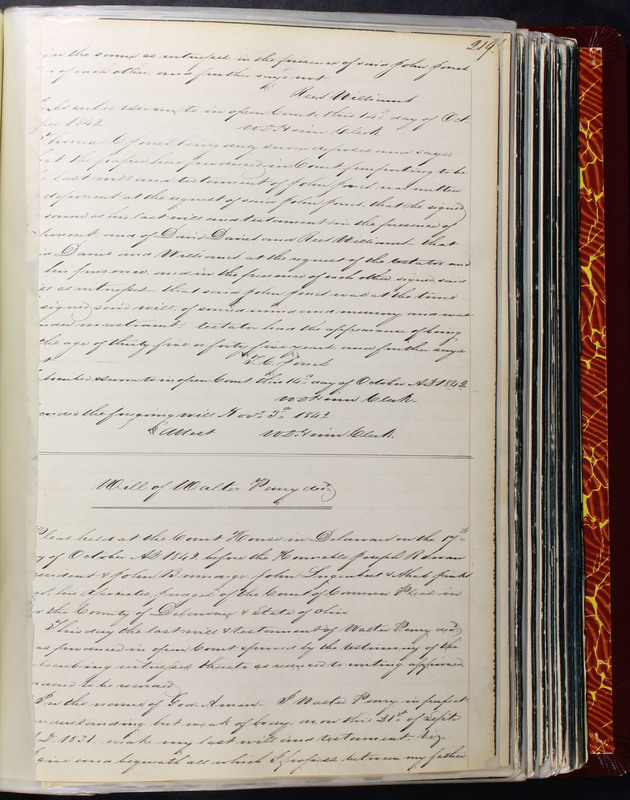 219
in the same as witnesses in the presence of said John Jones
of each other and further says not
Reed Williams
sworn to in open Court this 14th day of Oct.
1842
Clerk
Thomas C Jones being duly sworn deposes and says
that the paper here produced in Court purporting to be
last will and testament of John Jones was written
deponent at the request of said John Jones, that he signed
same as his last will and testament in the presence of
deponent and of David Davies and Reed Williams that
Davies and Williams at the request of the testator and
his presence and in the presence of each other signed said
will as witnesses that said John Jones was at the time
signed said will of sound mind and memory and not
under restraint testator has the appearance of being
the age of thirty five or forty five years and further says
T. C. Jones
sworn to in open Court this 14th day of October AD 1842
Clerk
the foregoing will Nov. 1842
Attest Clerk.
Will of Walter Perry decd
Pleas held at the Court House in Delaware on the 17th
day of October AD 1842 before the Honorable Joseph Rowan
President & John
his Associates, Judges of the Court of Common Pleas in
for the County of Delaware & State of Ohio
This day the last will & testament of Walter Perry decd
was produced in open Court proved by the testimony of the
subscribing witnesses thereto as reduced to writing approved
ordered to be recorded
In the name of God Amen. I Walter Perry in perfect
understanding but weak of body on this 21st of Sept.
A.D. 1831, make my last will and testament. Viz.
give and bequeath all which I profess between my father